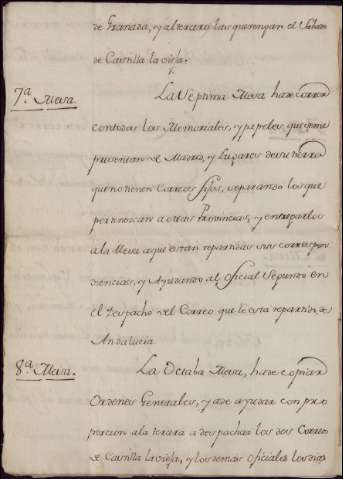 de Granada, y al tercero las que vengan del Reino
de Castilla la vieja.
7.ª Mesa.
La Septima Mesa ha de correr
con todos los Memoriales, y papeles, que se me
presentan de Madrid, y Lugares de su tierra
que no tienen Correos fijos, separando los que
pertenezcan a otras Provincias, y entregarlos
a la Mesa a que estan repartidas sus correspon
dencias, y Ayudando al oficial Segundo en
el Despacho del Correo que le esta repartido, de
Andalucia
8.ª Mesa.
La Octaba Mesa, ha de copiar
Ordenes Generales, y a de ayudar con pro
porcion a la tercera a despachar los dos Correos
de Castilla la vieja, y los demas oficiales los dias